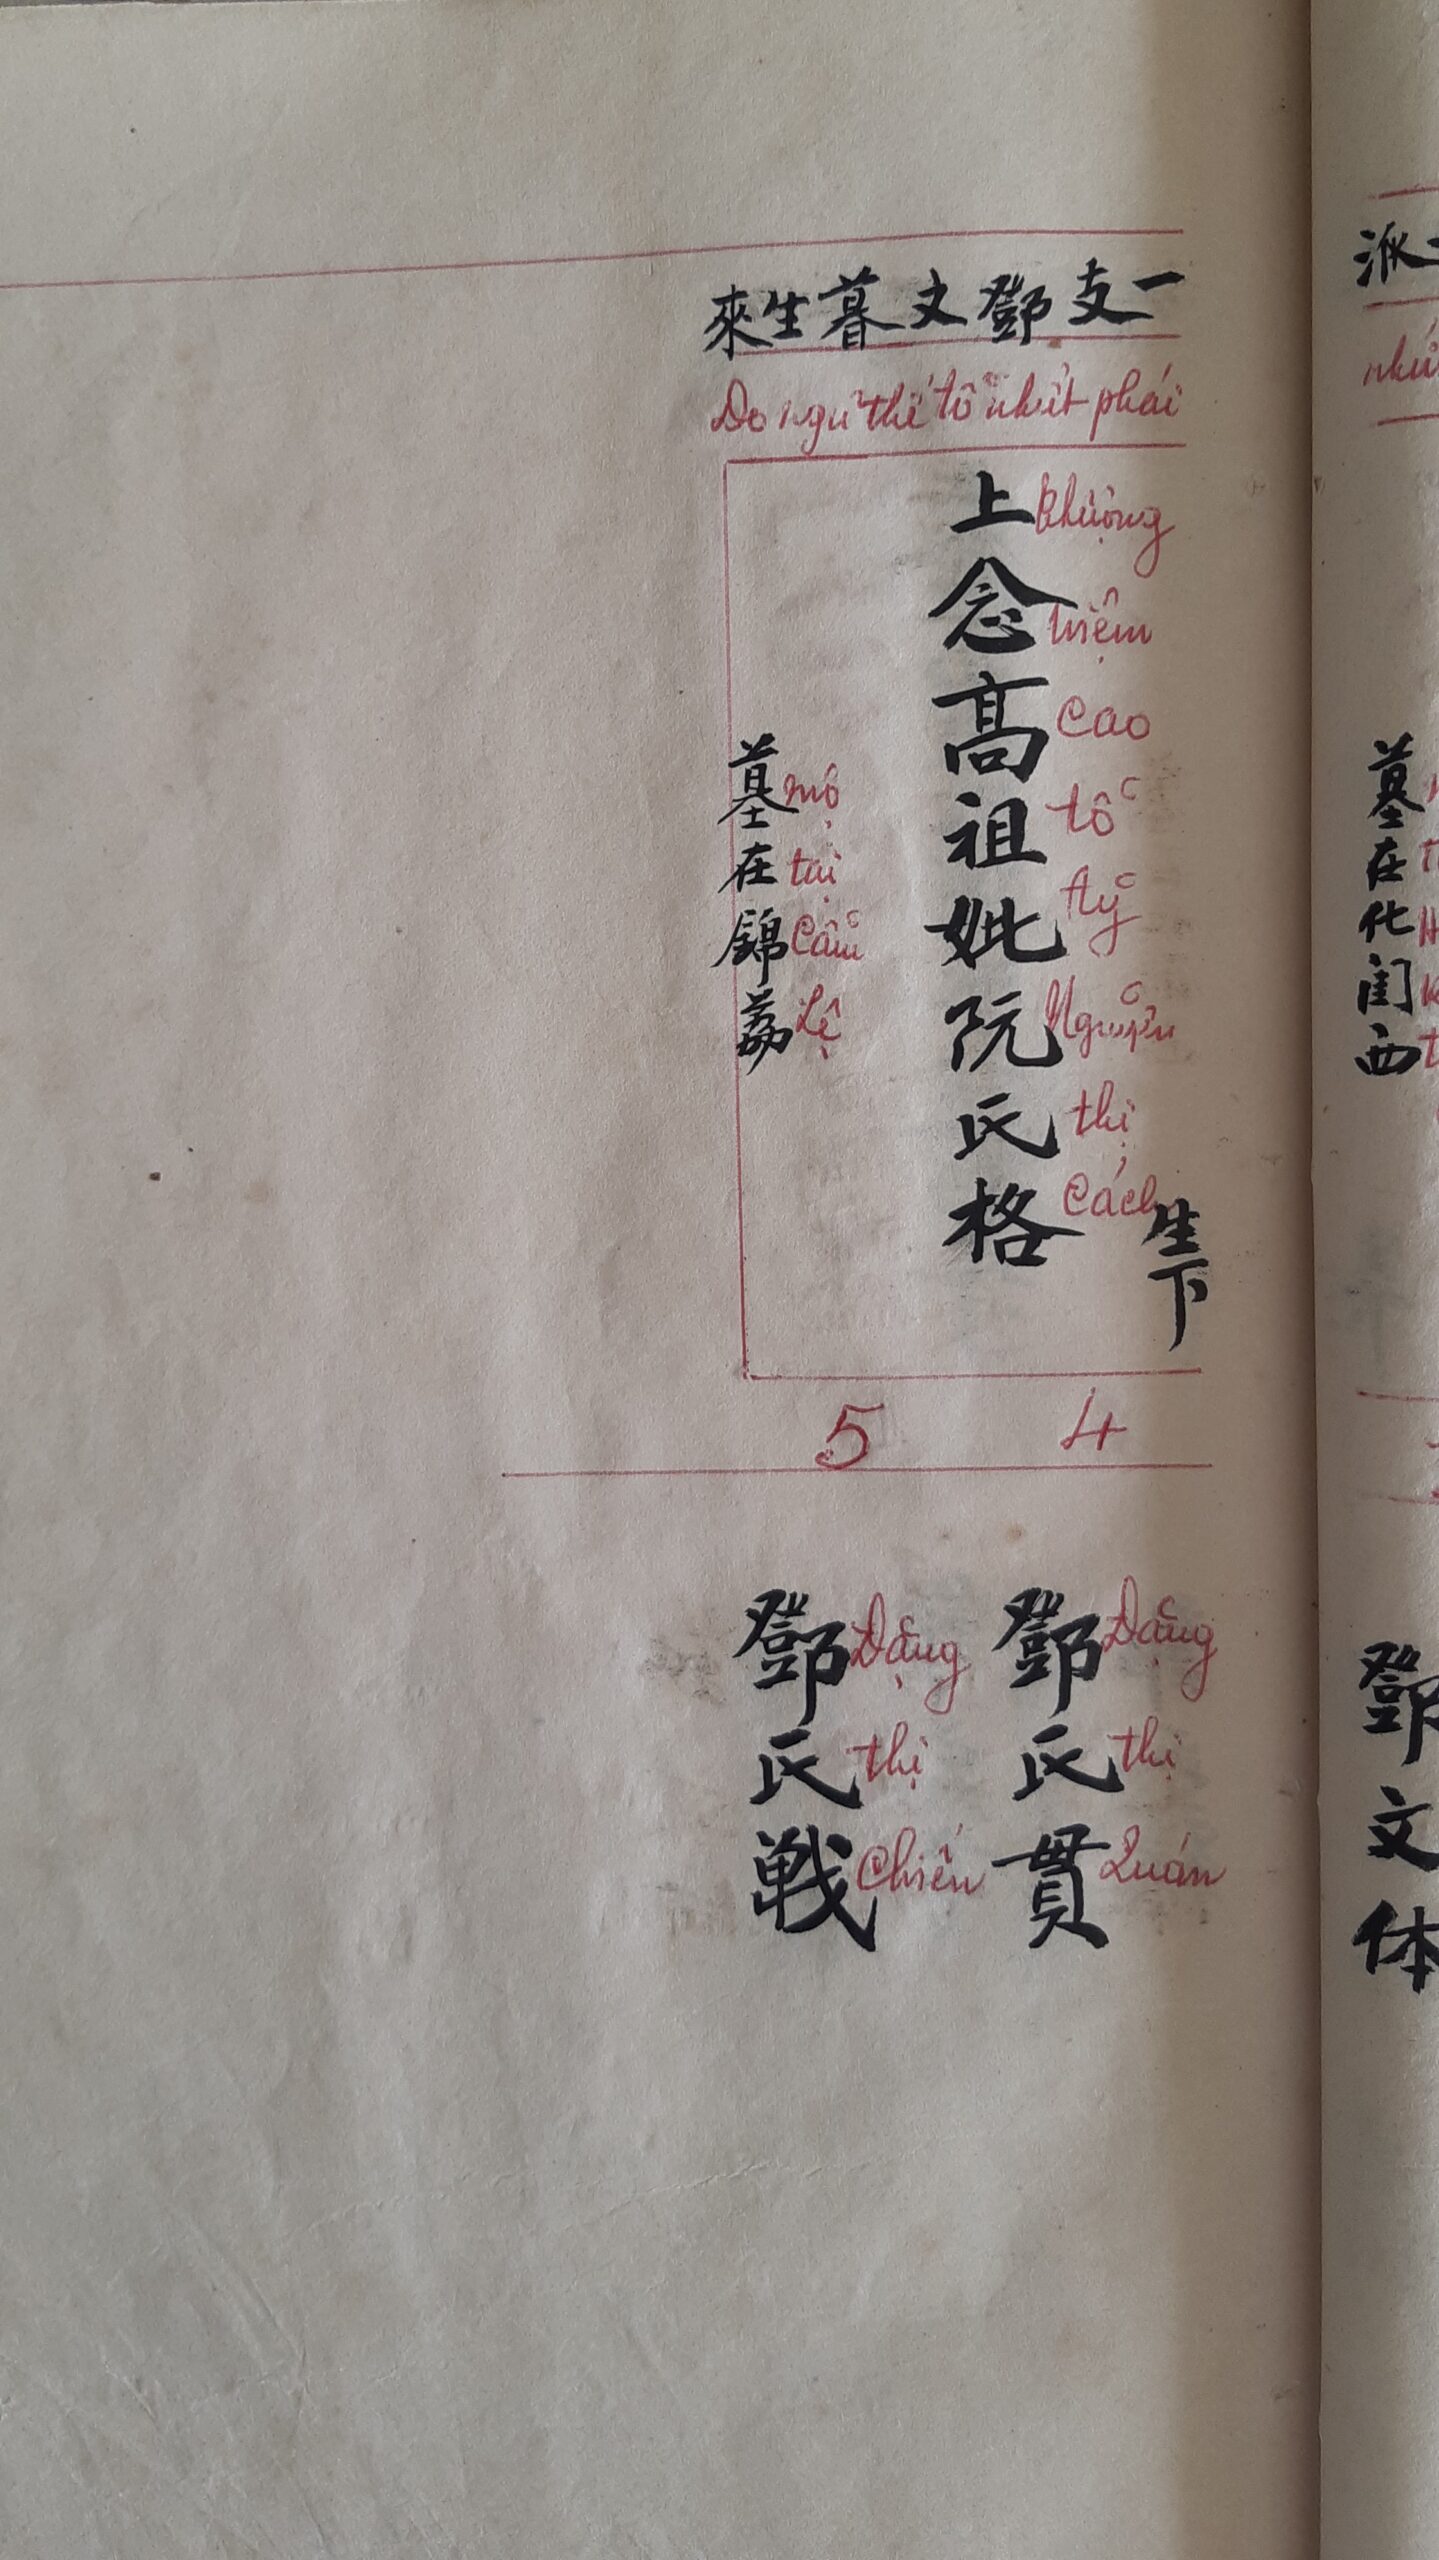 一支鄧文暮生來
Do ngũ thế tổ nhất phái
上念高祖妣阮氏格
Thượng niệm Cao tổ tỷ Nguyễn thị Cách
生下
墓在錦荔
mộ tại Cẩm Lệ
4
5
鄧氏貫
Đặng thị Quán
鄧氏戦
Đặng thị Chiến
派
墓在化闺西
鄧文体